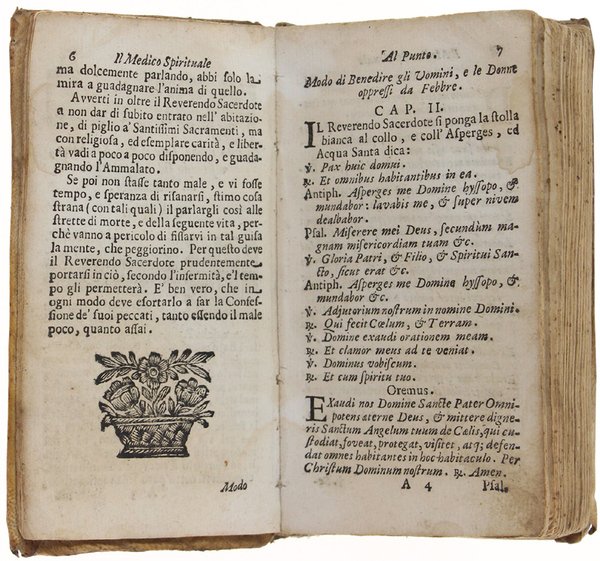 6 Il Medico Spirituale
ma dolcemente parlando, abbi ſolo la
mira a guadagnare l'anima di quello.
Avverti in oltre il Reverendo Sacerdote
a non dar di ſubito entrato nell' abitazio-
ne, di piglio a' Santiſſimi Sacramenti, ma
con religioſa, ed eſemplare carità, e liber-
tà vadi a poco a poco diſponendo, e guada-
gnando l'Ammalato.
Se poi non ſtaſſe tanto male, e vi foſſe
tempo, e ſperanza di riſanarſi, ſtimo coſa
ſtrana (con tali quali) il parlargli così alle
ſtrette di morte, e della ſeguente vita, per-
chè vanno a pericolo di fiſſarvi in tal guiſa
la mente, che peggiorino. Per queſto deve
il Reverendo Sacerdote prudentemente
portarſi in ciò, ſecondo l'infermità, e'l tem-
po gli permetterà. E' ben vero, che in
ogni modo deve eſortarlo a far la Confeſ-
ſione de' ſuoi peccati, tanto eſſendo il male
poco, quanto aſſai.
Modo
Al Punto. 7
Modo di Benedire gli Uomini, e le Donne
oppreſſi da Febbre.
CAP. II.
IL Reverendo Sacerdote ſi ponga la ſtolla
bianca al collo, e coll' Aſperges, ed
Acqua Santa dica:
℣. Pax huic domui.
℟. Et omnibus habitantibus in ea.
Antiph. Aſperges me Domine hyſſopo, &
mundabor: lavabis me, & ſuper nivem
dealbabor.
Pſal. Miſerere mei Deus, ſecundùm ma-
gnam miſericordiam tuam &c.
℣. Gloria Patri, & Filio, & Spiritui San-
cto, ſicut erat &c.
Antiph. Aſperges me Domine hyſſopo, &
mundabor &c.
℣. Adjutorium noſtrum in nomine Domini.
℟. Qui fecit Cœlum, & Terram.
℣. Domine exaudi orationem meam.
℟. Et clamor meus ad te veniat.
℣. Dominus vobiſcum.
℟. Et cum ſpiritu tuo.
Oremus.
Exaudi nos Domine Sancte Pater Omni-
potens æterne Deus, & mittere digne-
ris Sanctum Angelum tuum de Cælis, qui cu-
ſtodiat, foveat, protegat, viſitet, atq; defen-
dat omnes habitantes in hoc habitaculo. Per
Chriſtum Dominum noſtrum. ℟. Amen.
A 4 Pſal.